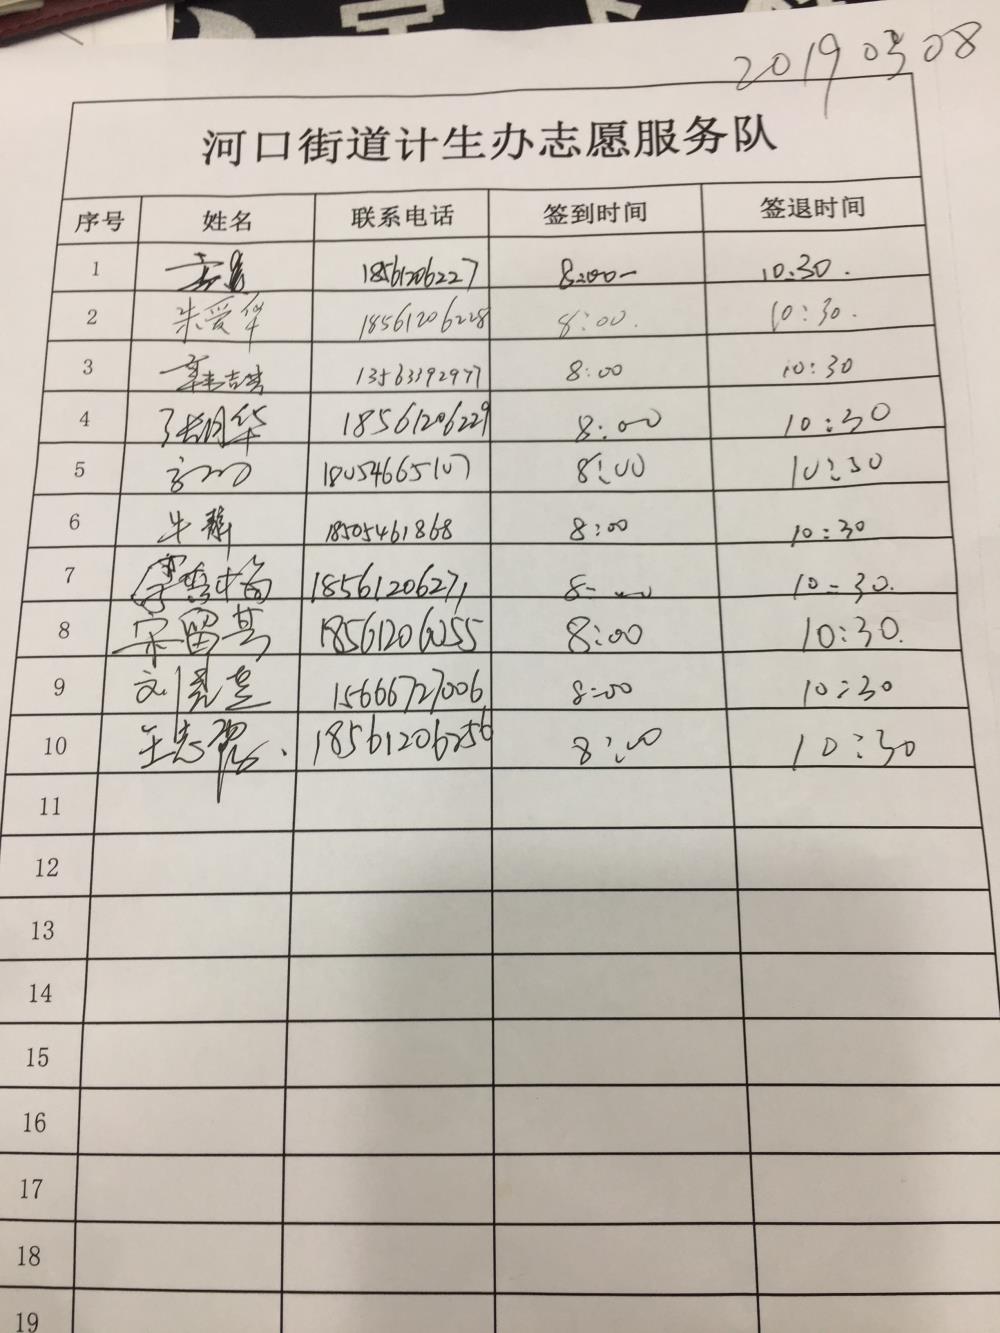 20190308
河口街道计生办志愿服务队
序号 姓名 联系电话 签到时间 签退时间
1 18561206227 8:00 10:30.
2 朱爱华 18561206228 8:00. 10:30.
3 13563392977 8:00 10:30
4 张明华 18561206229 8:00 10:30
5 18054665107 8:00 10:30
6 牛静 18505461868 8:00 10:30
7 18561206271 8:00 10:30.
8 宋留其 18561206255 8:00 10:30.
9 15666727006 8:00 10:30
10 18561206256 8:00 10:30
11
12
13
14
15
16
17
18
19